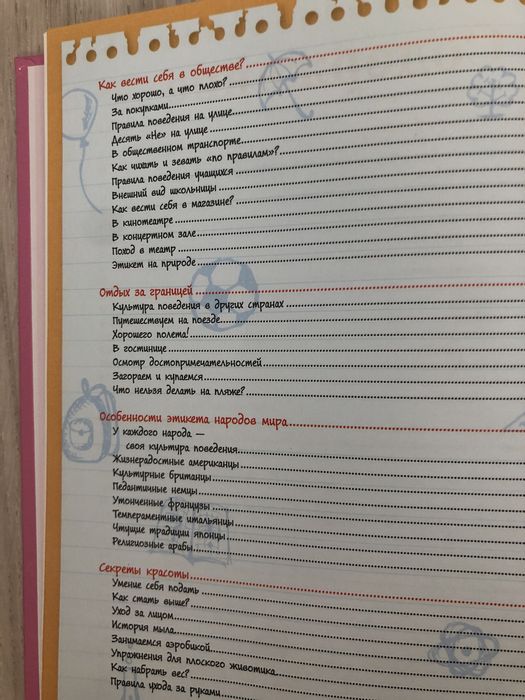 Как вести себя в обществе?
Что хорошо, а что плохо?
За покупками
Правила поведения на улице
Десять «Не» на улице
В общественном транспорте
Как чихать и зевать «по правилам»?
Правила поведения учащихся
Внешний вид школьницы
Как вести себя в магазине?
В кинотеатре
В концертном зале
Поход в театр
Этикет на природе
Отдых за границей
Культура поведения в других странах
Путешествуем на поезде
Хорошего полета!
В гостинице
Осмотр достопримечательностей
Загораем и купаемся
Что нельзя делать на пляже?
Особенности этикета народов мира
У каждого народа —
своя культура поведения
Жизнерадостные американцы
Культурные британцы
Педантичные немцы
Утонченные французы
Темпераментные итальянцы
Чтущие традиции японцы
Религиозные арабы
Секреты красоты
Умение себя подать
Как стать выше?
Уход за лицом
История мыла
Занимаемся аэробикой
Упражнения для плоского животика
Как набрать вес?
Правила ухода за руками